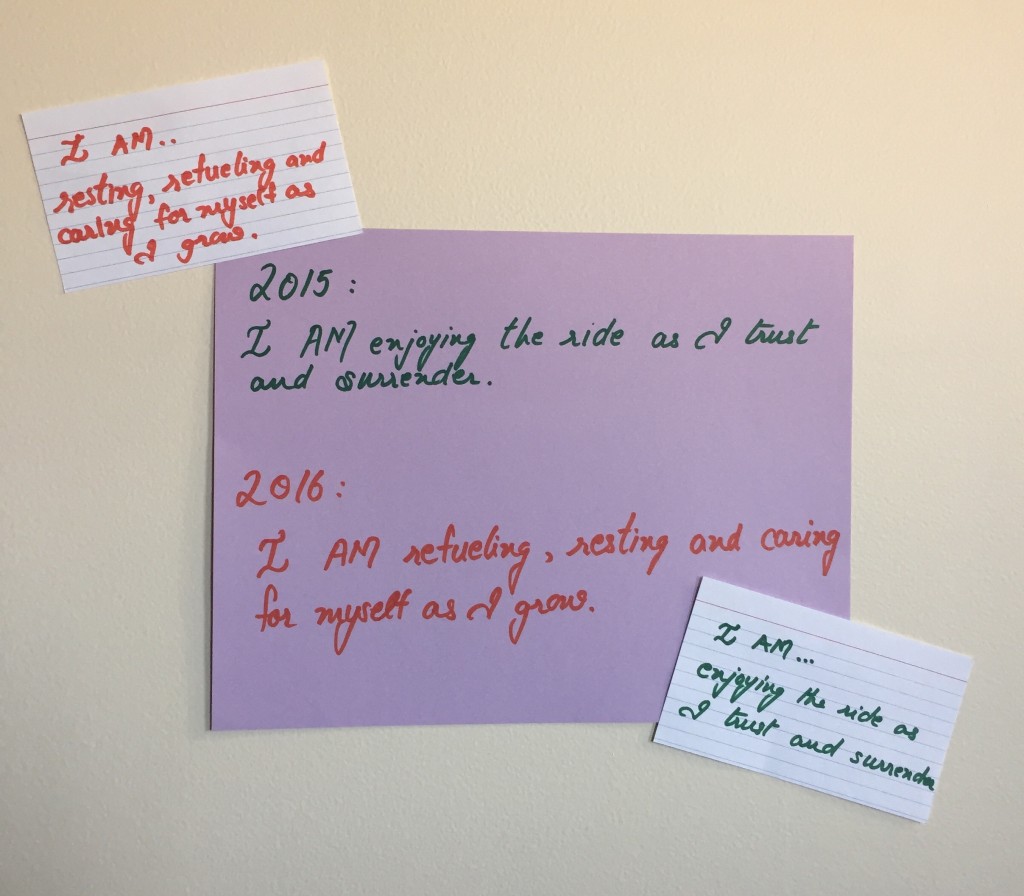 I AM..
resting, refueling and
caring for myself as
I grow.
2015 :
I AM enjoying the ride as I trust
and surrender.
2016 :
I AM refueling, resting and caring
for myself as I grow.
I AM...
enjoying the ride as
I trust and surrender